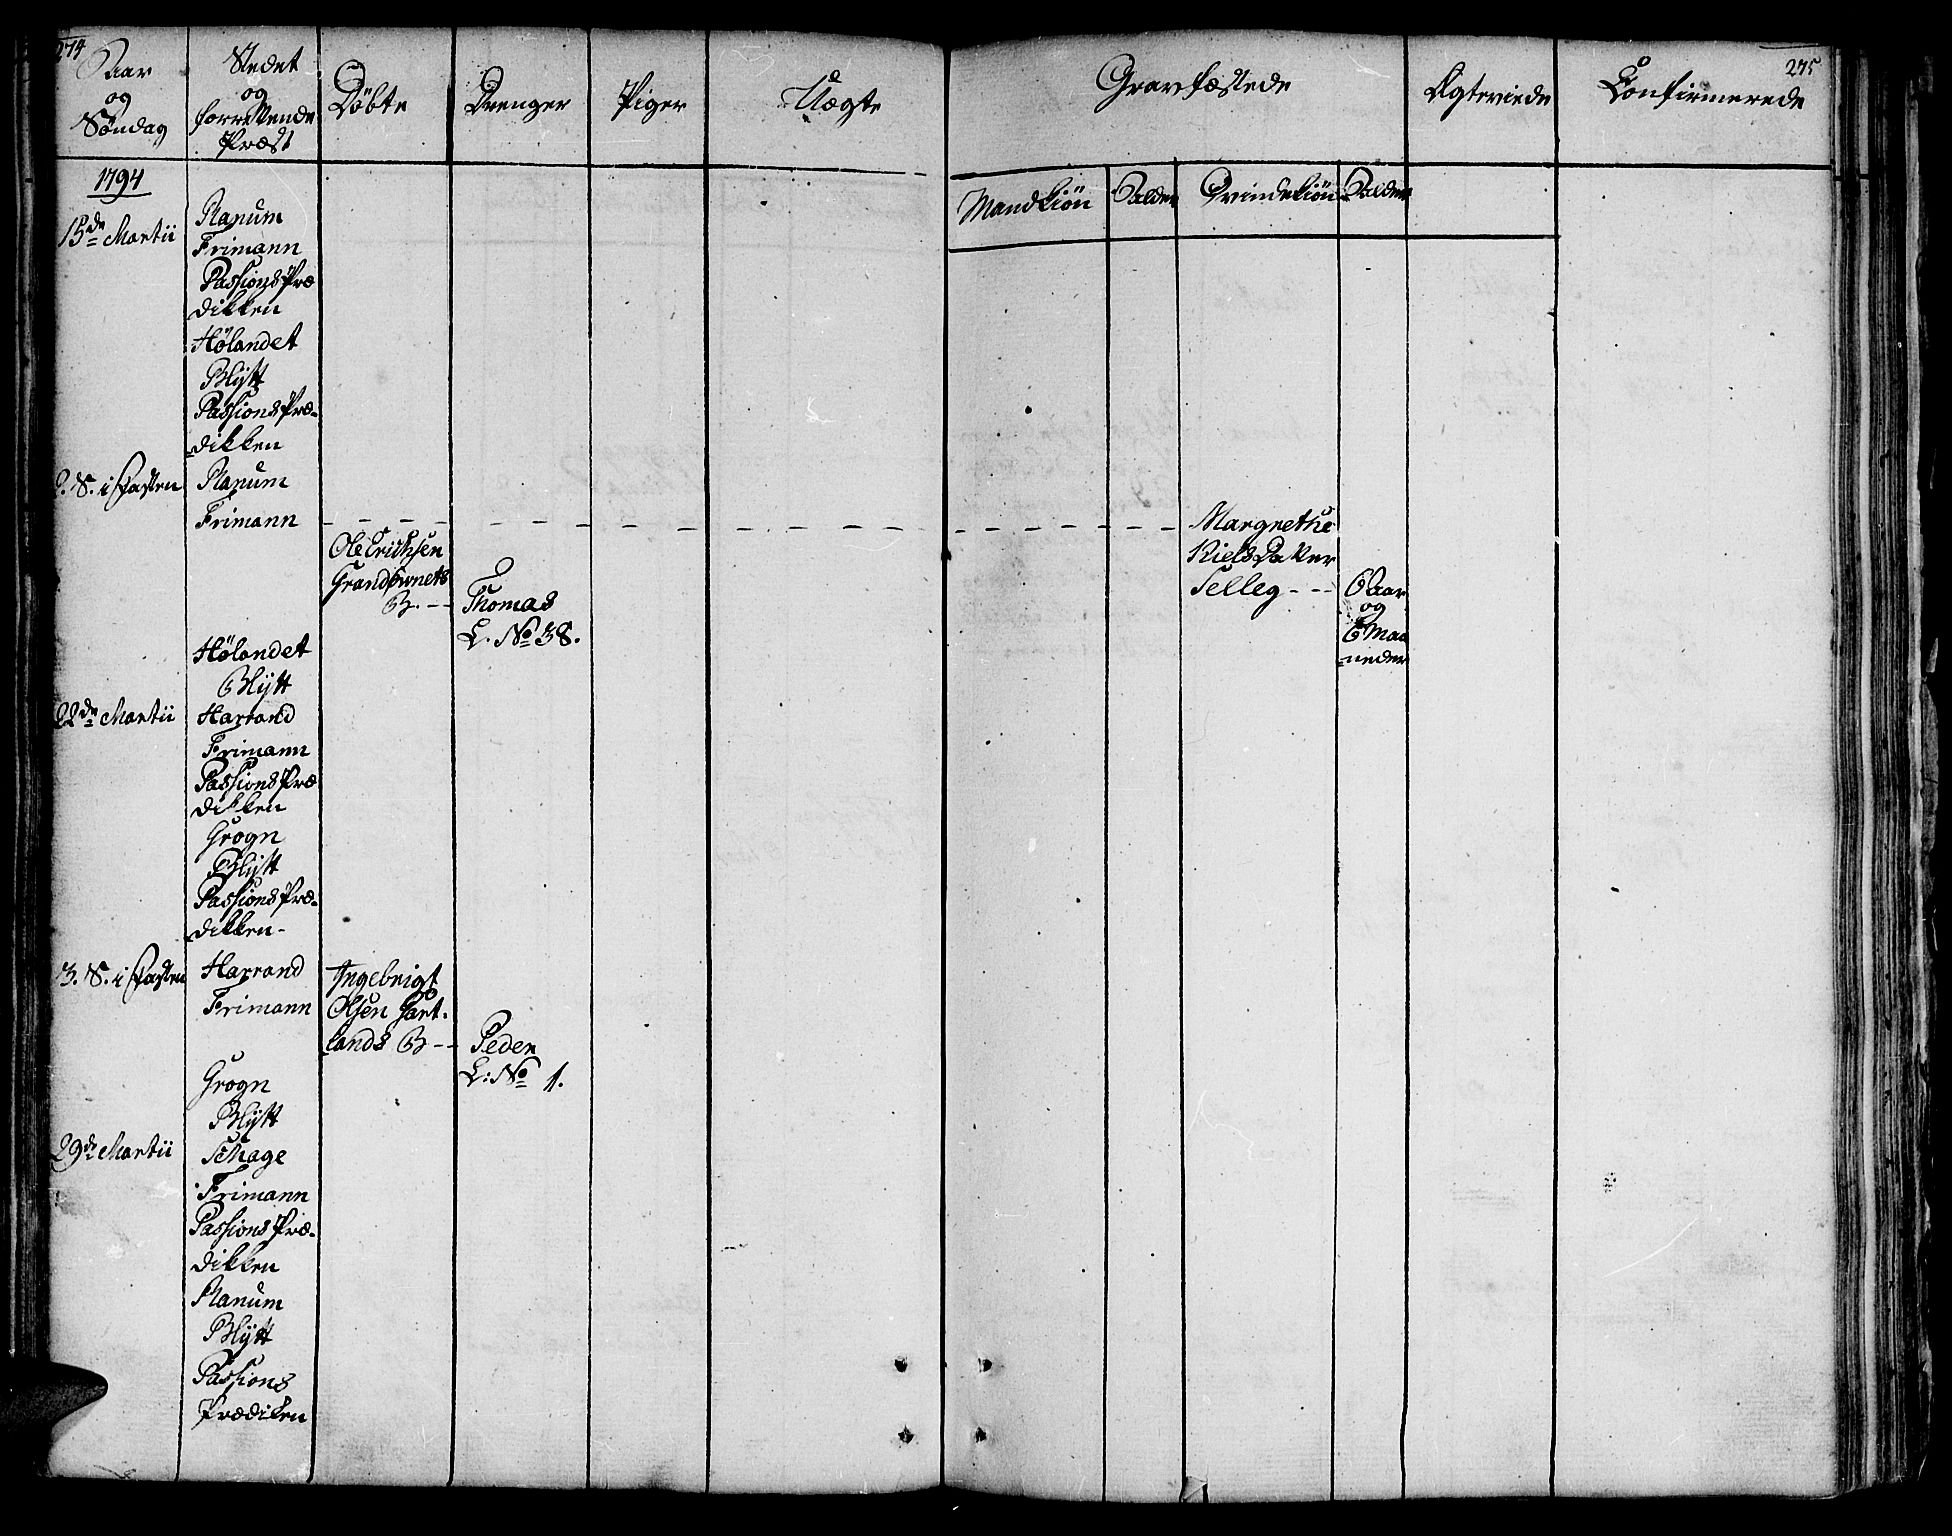 274
Aar
og
Søndag
Stedet
og
forrettende
Præst
Døbte
Drenger
Piger
Uægte
Gravfæstede
Ægteviede
Confirmerede
275
Mandkiön
Alder
Qvindekiön
Alder
1794
15de Martii
Ranum
Frimann
Passions Præ
dikken
Hölandet
Blÿtt
Passions Præ-
dikken
2. S. i Fasten
Ranum
Frimann
Ole Erichsen
B. --
Thomas
L. No 38.
Margrethe
Niels Datter
Selleg - - -
6 Aar
og
6 Maa
neder
Hölandet
Blÿtt
22de Martii
Harrand
Frimann
Passions Præ
dikken
Grogn
Blÿtt
Passions Præ-
dikken-
3. S. i Fasten
Harrand
Frimann
Ingebrigt
Olsen Gart-
lands B--
Peder
L: No 1.
Grogn
Blÿtt
29de Martii
Schage
Frimann
Passions Præ-
dikken
Ranum
Blÿtt
Passions
Prædiken